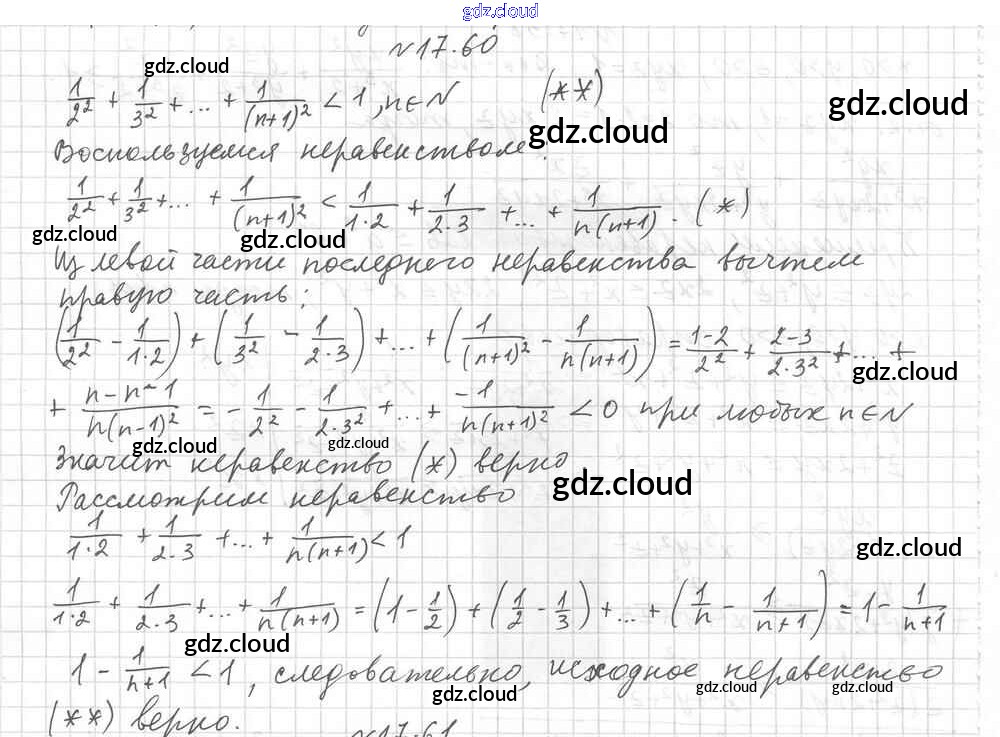 gdz.cloud
№17.60
gdz.cloud
1/2² + 1/3² + ... + 1/(n+1)² < 1, n∈N (**)
gdz.cloud
gdz.cloud
Воспользуемся неравенством:
1/2² + 1/3² + ... + 1/(n+1)² < 1/1·2 + 1/2·3 + ... + 1/n(n+1). (*)
gdz.cloud
gdz.cloud
Из левой части последнего неравенства вычтем
правую часть:
(1/2² - 1/1·2) + (1/3² - 1/2·3) + ... + (1/(n+1)² - 1/n(n+1)) = 1-2/2² + 2-3/2·3² + ... +
gdz.cloud
+ n-n-1/n(n-1)² = - 1/2² - 1/2·3² + ... + -1/n(n+1)² < 0 при любых n∈N
gdz.cloud
gdz.cloud
Значит неравенство (*) верно.
gdz.cloud
Рассмотрим неравенство
1/1·2 + 1/2·3 + ... + 1/n(n+1) < 1
gdz.cloud
1/1·2 + 1/2·3 + ... + 1/n(n+1) = (1 - 1/2) + (1/2 - 1/3) + ... + (1/n - 1/n+1) = 1 - 1/n+1
gdz.cloud
1 - 1/n+1 < 1, следовательно, исходное неравенство
gdz.cloud
gdz.cloud
gdz.cloud
(**) верно.
№17.61